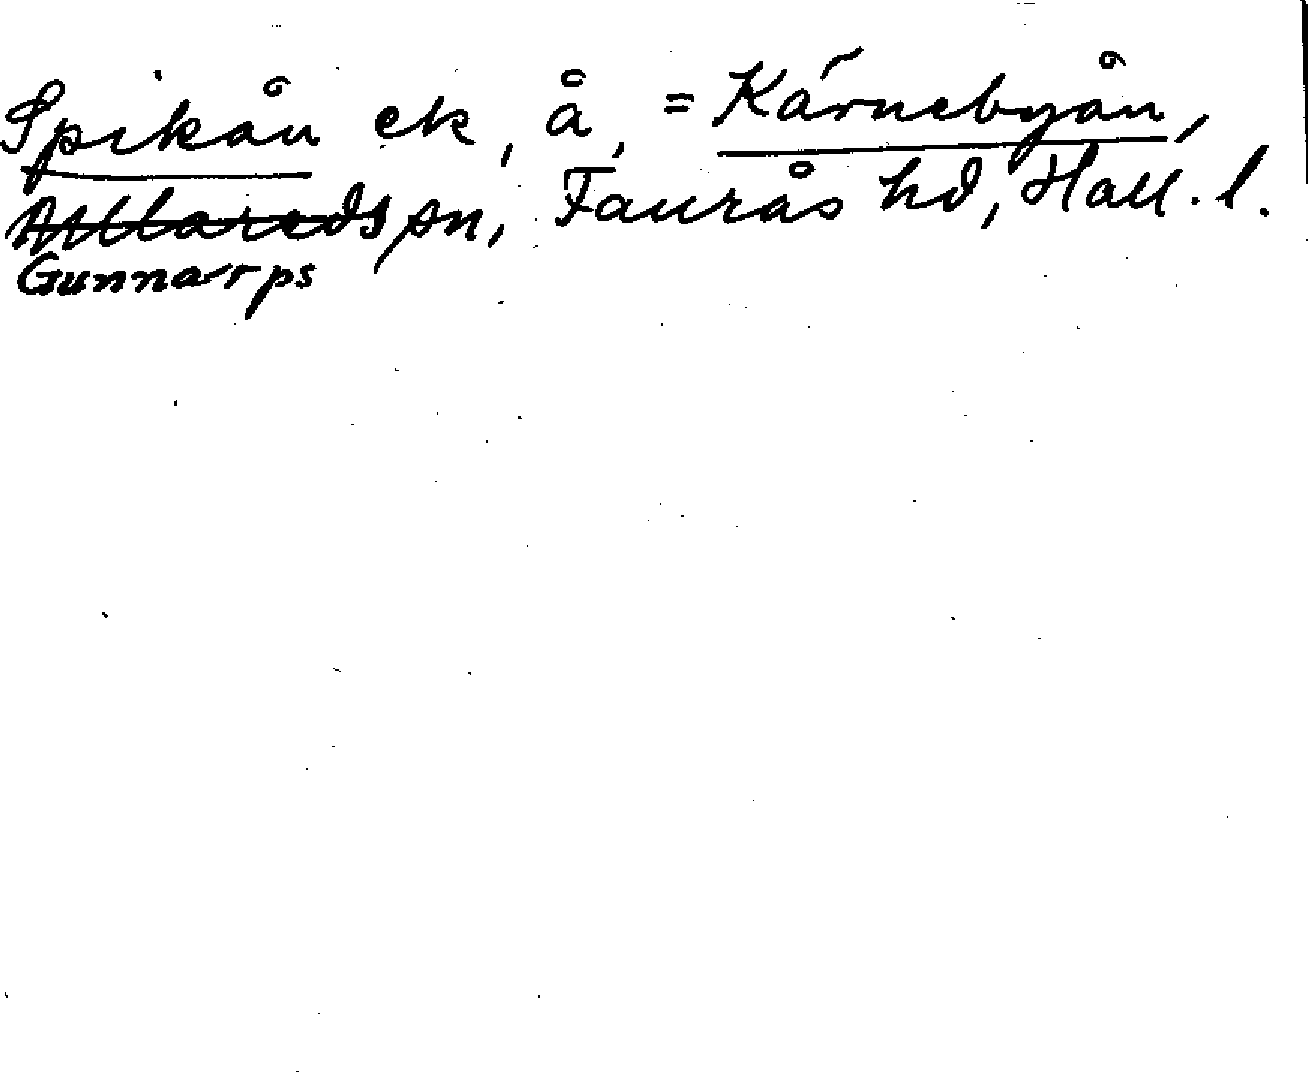 Spikån ek, å, = Kärnebyån,
Ullareds sn, Faurås hd, Hall. l.
Gunnarps